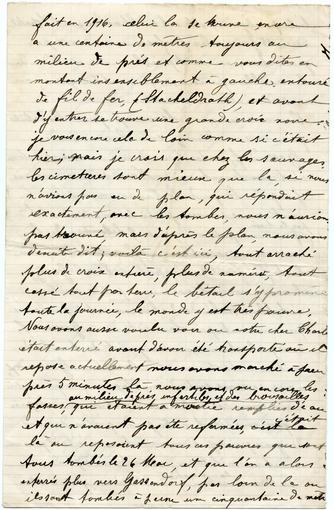 fait en 1916, celui la se trouve encore
a une centaine de metres toujours au
milieu de prés et comme vous dites en
montant insensiblement à gauche, entouré
de fil de fer, (Stacheldrath) et avant
d'y entrer se trouve une grande croix noire
je vois encore cela de loin comme si c'était
hier, mais je crois que chez les sauvages
les cimetieres sont mieux que la, si nous
n'avions pas eu de plan, qui répondait
exactement, avec les tombes, nous n'aurions
pas trouvé mais d'après le plan nous avons
dit, voilà c'est ici, tout arraché
plus de croix entiere, plus de numéro, tout
cassé tout par terre, le bétail s'y promene
toute la journée, le monde y est très pauvre,
Nous avons aussi voulu voir ou notre cher Charles
était enterré avant d'avoir été transporté où il
repose actuellement nous avons marché à peu
près 5 minutes là nous avons vu encore les
au milieu de près infertiles, et des broussailles
fosses, qui étaient à moitié remplies d'eau
et qui n'avaient pas été refermées, c'était
là ou reposaient tous ces pauvres qui sont
tous tombés le 26 Mai, et que l'on a alors
enterrés plus vers Gassendorf, pas loin de la ou
ils sont tombés à peine une cinquantaine de metres